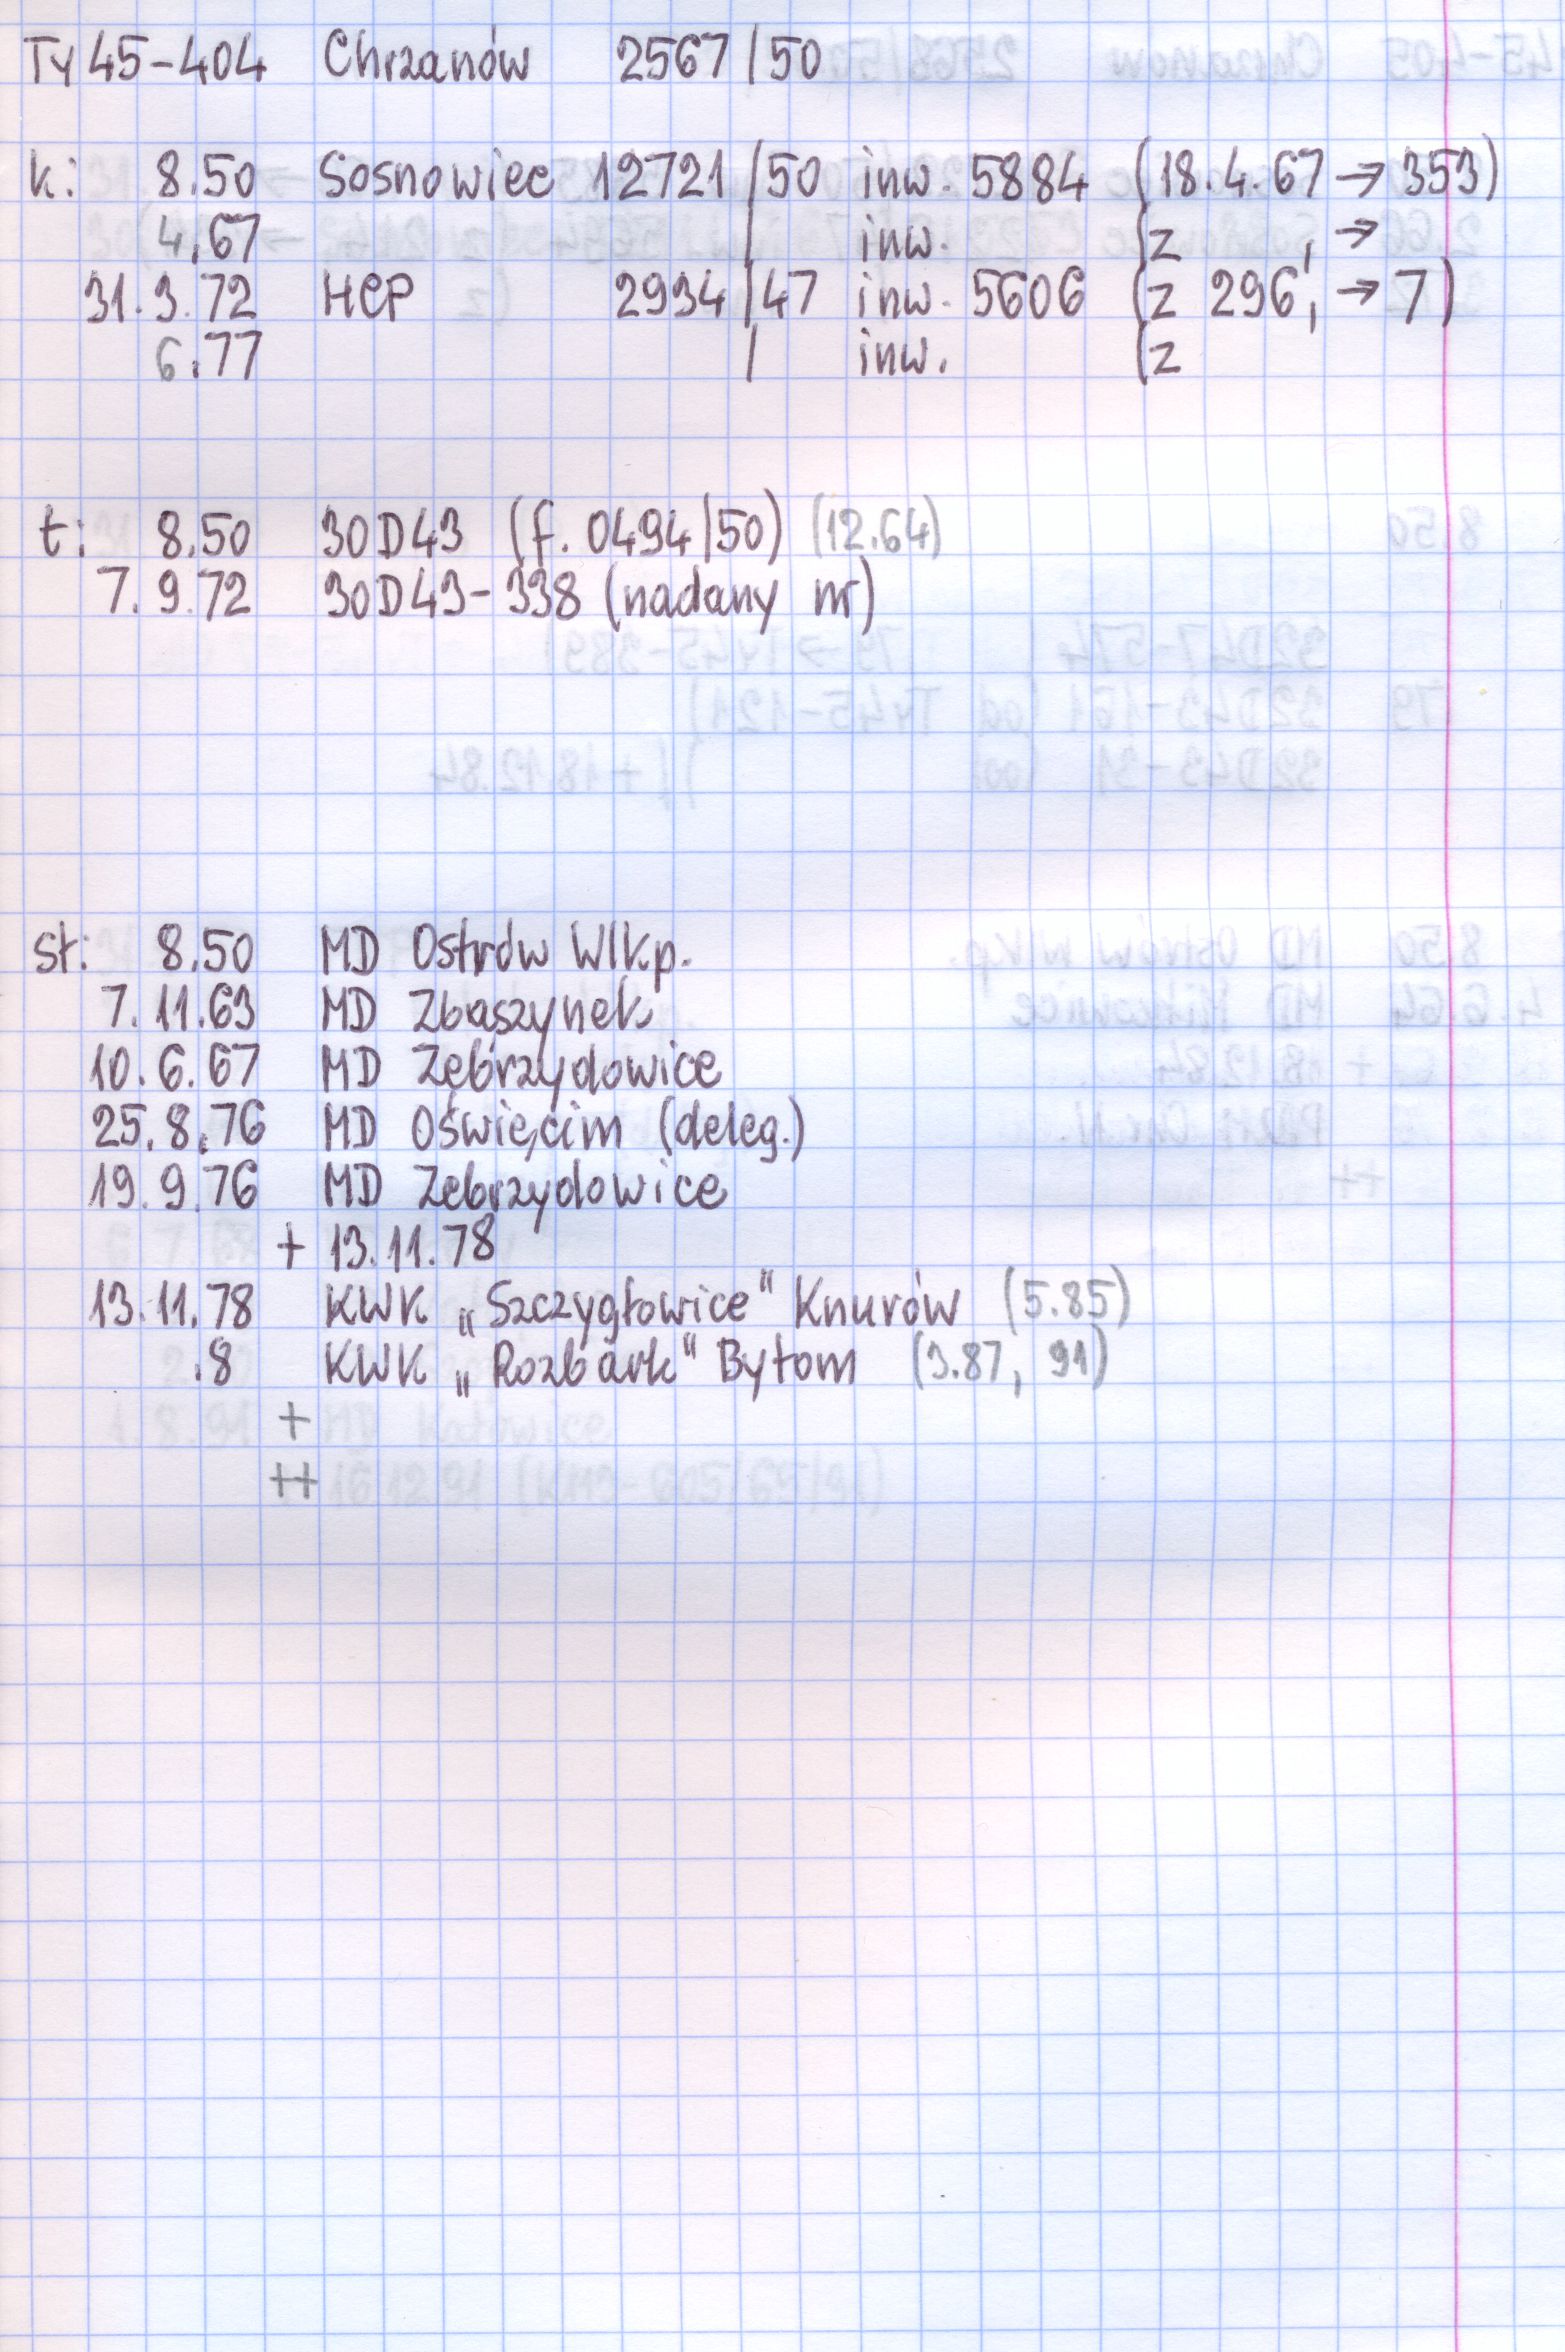 Ty45-404 Chrzanów 2567/50
k: 8.50 Sosnowiec 12721/50 inw. 5884 (18.4.67 → 353)
4.67 / inw. (z , →
31.3.72 HCP 2934/47 inw. 5606 (z 296, → 7)
6.77 / inw. (z
t: 8.50 30D43 (f. 0494/50) (12.64)
7.9.72 30D43-338 (nadany nr)
st: 8.50 MD Ostrów Wlkp.
7.11.63 MD Zbąszynek
10.6.67 MD Zebrzydowice
25.8.76 MD Oświęcim (deleg.)
19.9.76 MD Zebrzydowice
+ 13.11.78
13.11.78 KWK „Szczygłowice" Knurów (5.85)
.8 KWK „Rozbark" Bytom (3.87, 91)
+
++